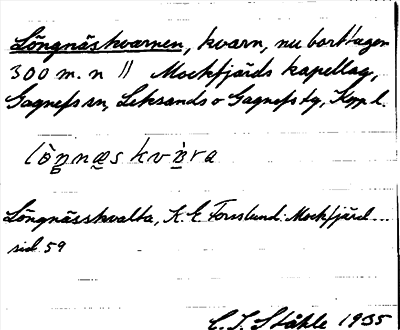 Löngnäskvarnen, kvarn, nu borttagen
300 m. n || Mockfjärds kapellag,
Gagnefs sn, Leksands o Gagnefs tg, Kopp. l.
löŋnæs kv
Löngnässkvalta, K. E. Forsslund: Mockfjärd...
sid. 59
C. I. Ståhle 1935